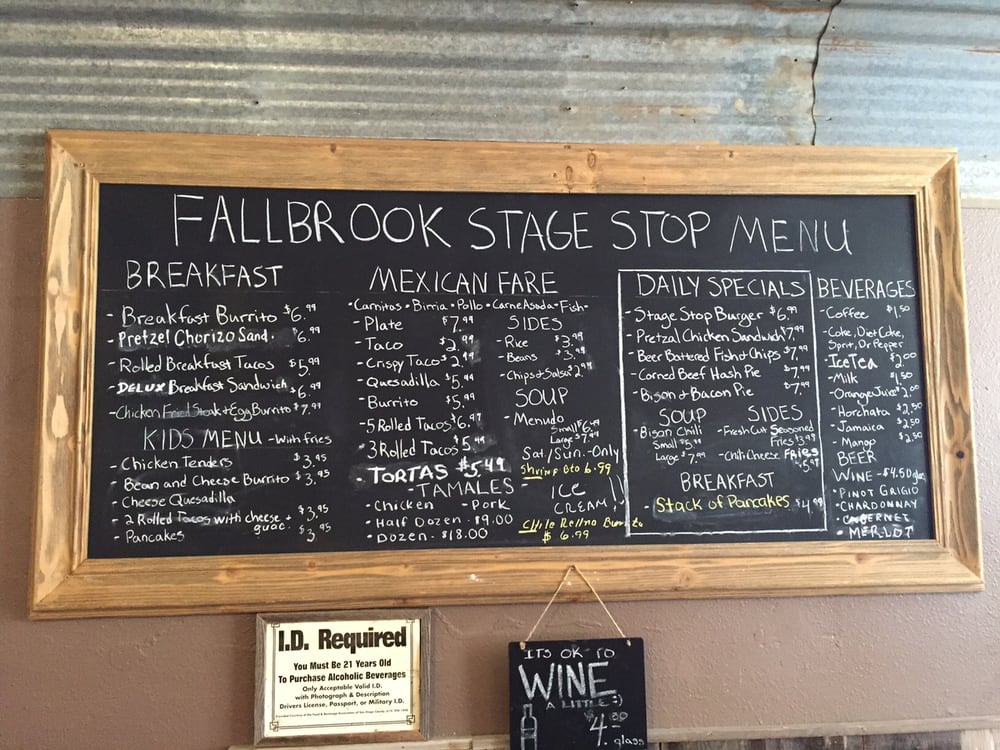 FALLBROOK STAGE STOP MENU
BREAKFAST
- Breakfast Burrito $6.99
- Pretzel Chorizo Sand. $6.99
- Rolled Breakfast Tacos $5.99
- DELUX Breakfast Sandwich $6.99
- Chicken Fried Steak + Egg Burrito $7.99
KIDS MENU - With fries
- Chicken Tenders $3.95
- Bean and Cheese Burrito $3.95
- Cheese Quesadilla
- 2 Rolled Tacos with cheese + guac. $3.95
- Pancakes $3.95
MEXICAN FARE
• Carnitas • Birria • Pollo • Carne Asada • Fish •
- Plate $7.99
- Taco $2.99
- Crispy Taco $2.99
- Quesadilla $5.99
- Burrito $5.99
- 5 Rolled Tacos $6.99
- 3 Rolled Tacos $5.99
- TORTAS $5.49
- TAMALES
- Chicken - Pork
- Half Dozen - $9.00
- Dozen - $18.00
SIDES
- Rice $3.99
- Beans $3.99
- Chips + Salsa $2.99
SOUP
- Menudo
Small $6.49
Large $7.99
Sat./Sun. - Only
Shrimp Bto 6.99
- ICE
CREAM!!
Chile Rellno Burrito
$ 6.99
DAILY SPECIALS
- Stage Stop Burger $6.99
- Pretzal Chicken Sandwich $7.99
- Beer Battered Fish + Chips $7.99
- Corned Beef Hash Pie $7.99
- Bison + Bacon Pie $7.99
SOUP
- Bison Chili
Small $5.99
Large $7.99
SIDES
- Fresh Cut Seasoned
Fries $3.99
- Chili Cheese Fries
$5.99
BREAKFAST
Stack of Pancakes $4.99
BEVERAGES
- Coffee $1.50
- Coke, Diet Coke,
Sprit, Dr Pepper
- Ice Tea $2.00
- Milk $1.50
- Orange Juice $2.00
- Horchata $2.50
- Jamaica $2.50
- Mango $2.50
BEER
WINE - $4.50 glass
• PINOT GRIGIO
• CHARDONNAY
• CABERNET
• MERLOT
I.D. Required
You Must Be 21 Years Old
To Purchase Alcoholic Beverages
Only Acceptable Valid I.D.
with Photograph & Description
Drivers License, Passport, or Military I.D.
ITS OK TO
WINE
A LITTLE :)
$4.50
glass